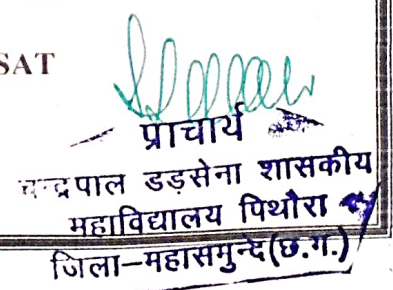 SAT
प्राचार्य
चन्द्रपाल डड़सेना शासकीय
महाविद्यालय पिथौरा
जिला-महासमुन्द(छ.ग.)